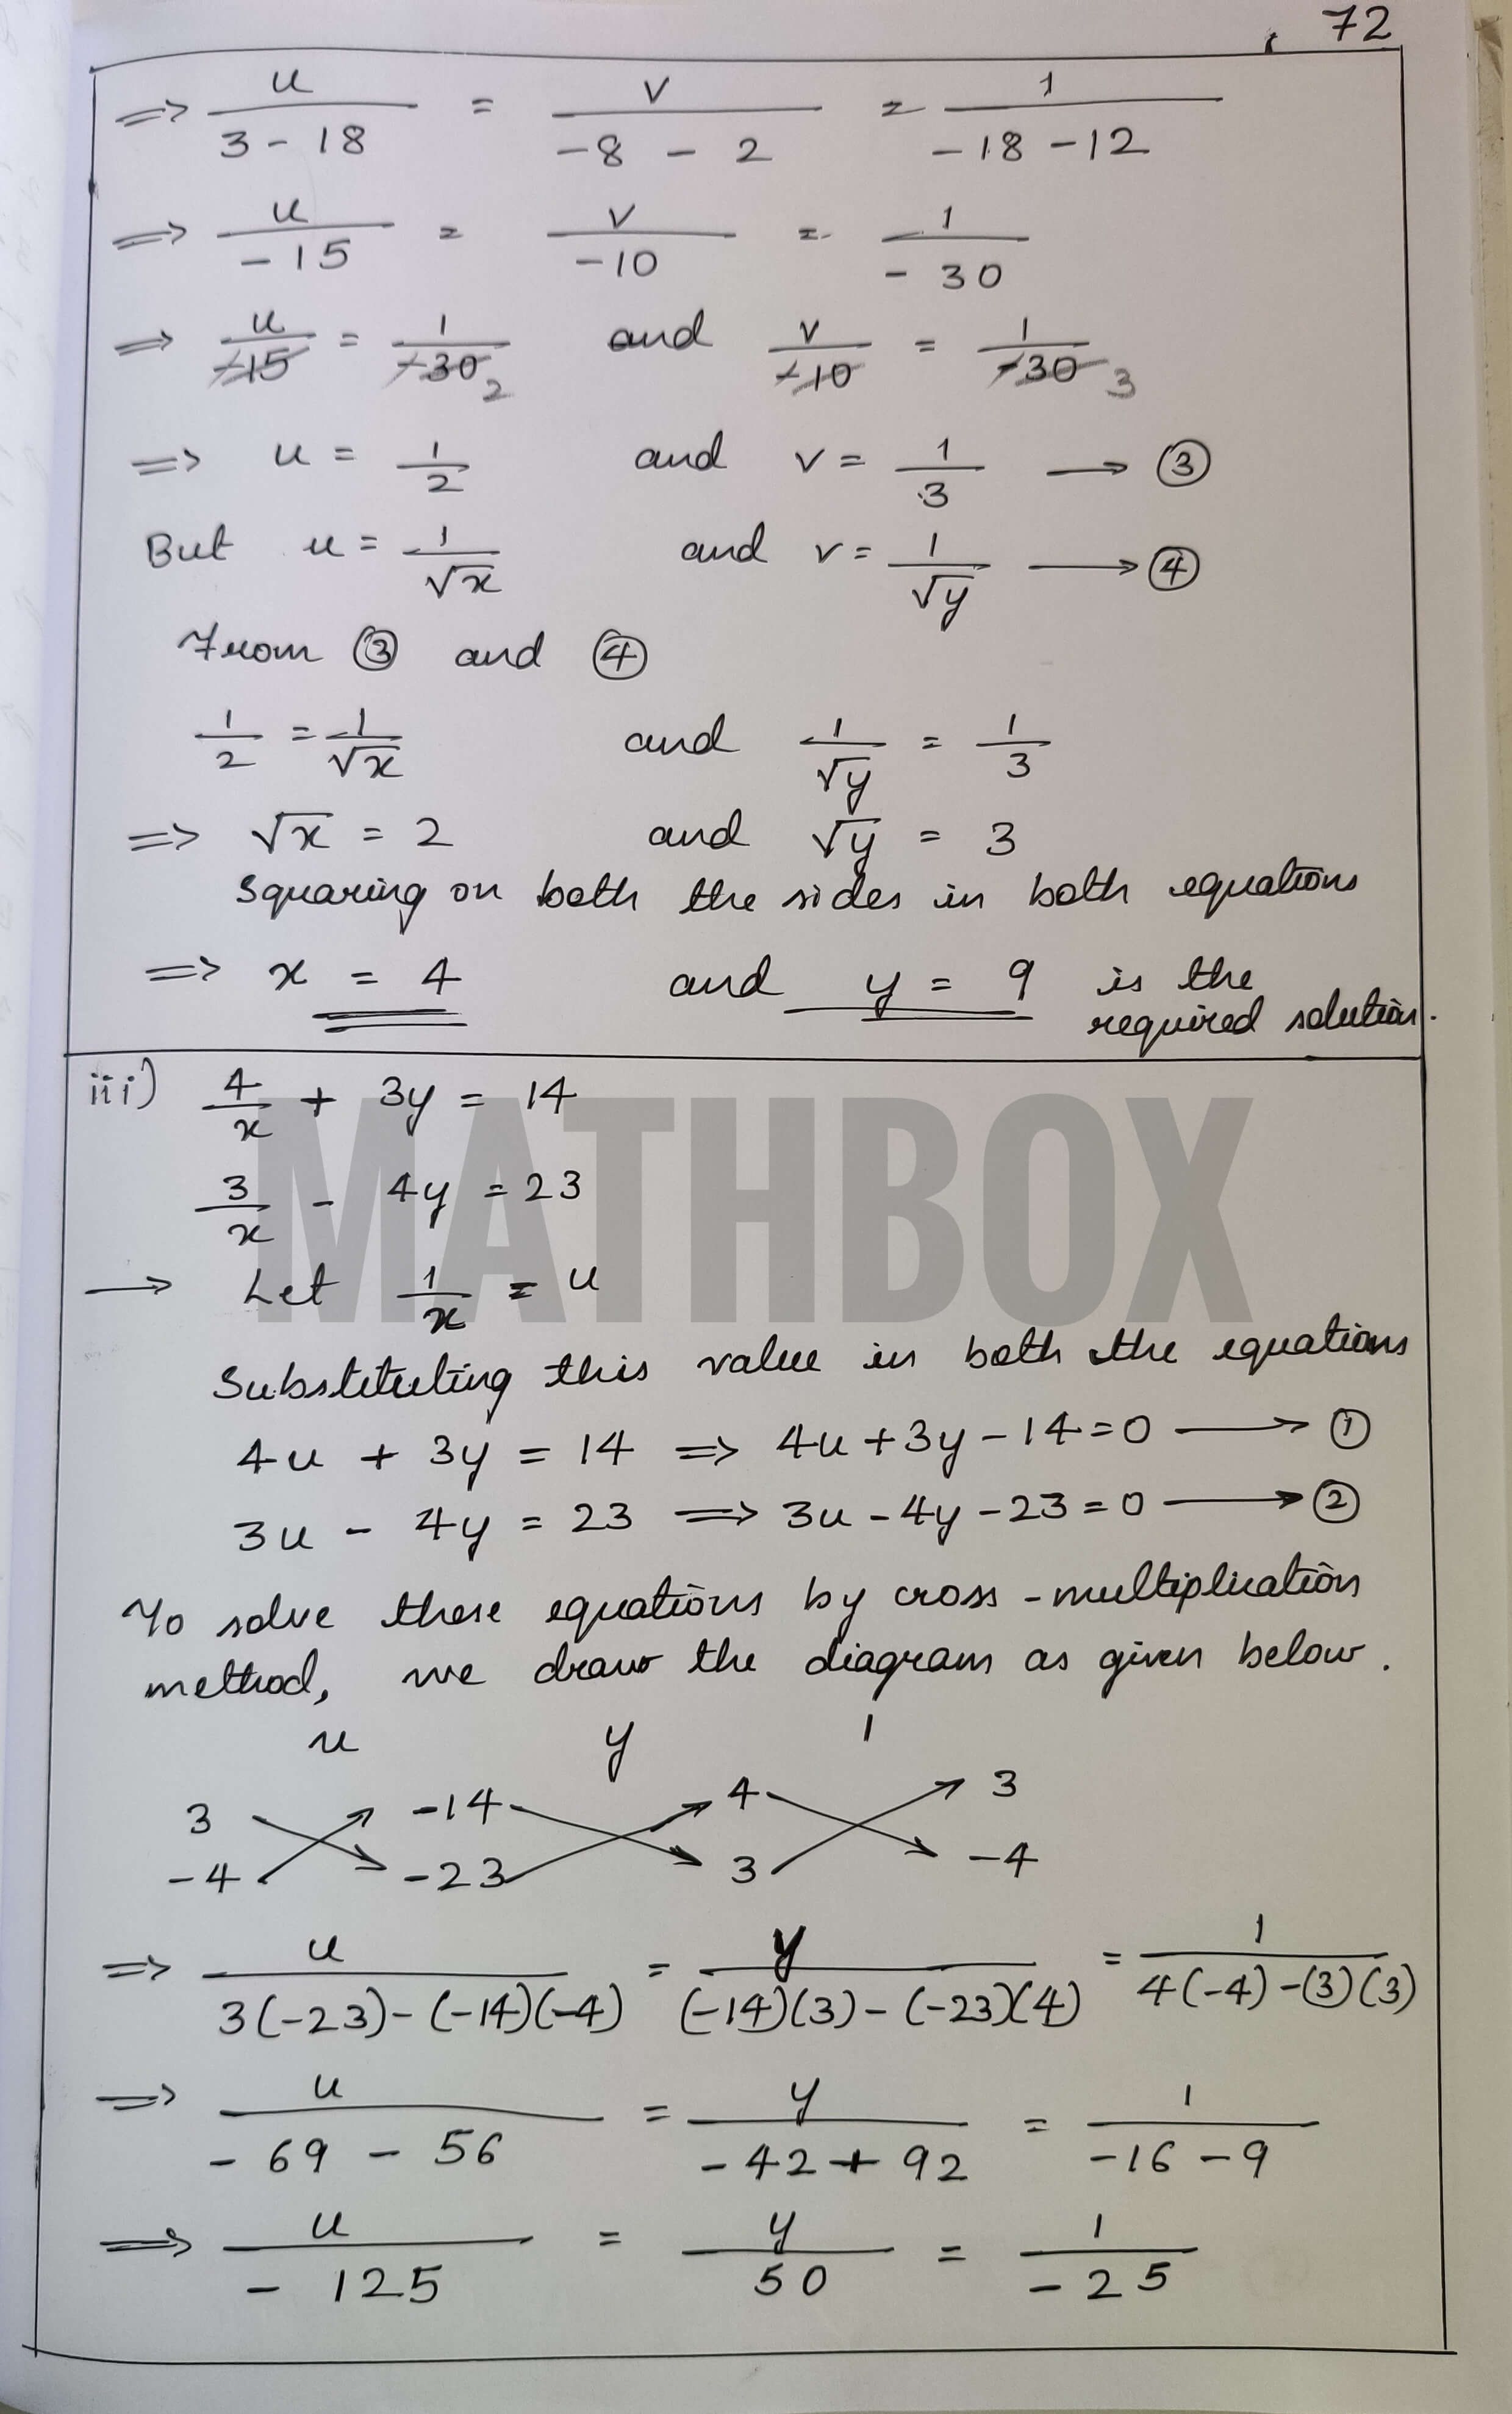 72
⇒ u/(3 - 18) = v/(-8 - 2) = 1/(-18 - 12)
⇒ u/(-15) = v/(-10) = 1/(-30)
⇒ u/-15 = 1/-30 2 and v/-10 = 1/-30 3
⇒ u = 1/2 and v = 1/3 → ③
But u = 1/√x and v = 1/√y → ④
From ③ and ④
1/2 = 1/√x and 1/√y = 1/3
⇒ √x = 2 and √y = 3
Squaring on both the sides in both equations
⇒ x = 4 and y = 9 is the
required solution.
iii) 4/x + 3y = 14
MATHBOX
3/x - 4y = 23
→ Let 1/x = u
Substituting this value in both the equations
4u + 3y = 14 ⇒ 4u + 3y - 14 = 0 → ①
3u - 4y = 23 ⇒ 3u - 4y - 23 = 0 → ②
To solve these equations by cross-multiplication
method, we draw the diagram as given below.
u y 1
3 -14 4 3
-4 -23 3 -4
⇒ u/(3(-23) - (-14)(-4)) = y/((-14)(3) - (-23)(4)) = 1/(4(-4) - (3)(3))
⇒ u/(-69 - 56) = y/(-42 + 92) = 1/(-16 - 9)
⇒ u/(-125) = y/50 = 1/(-25)